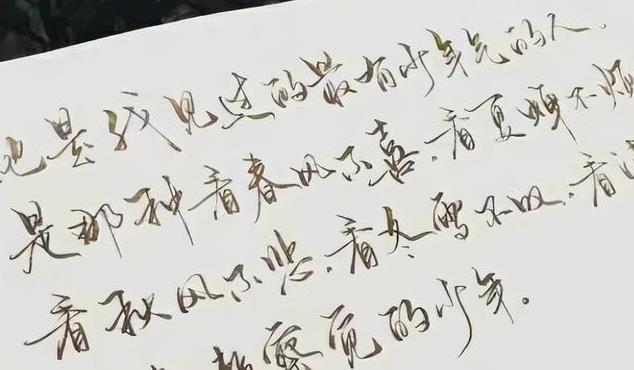 他是我见过的最有少年气的人。
是那种看春风不喜,看夏蝉不烦
看秋风不悲,看冬雪不叹,看满
懒察觉的少年。